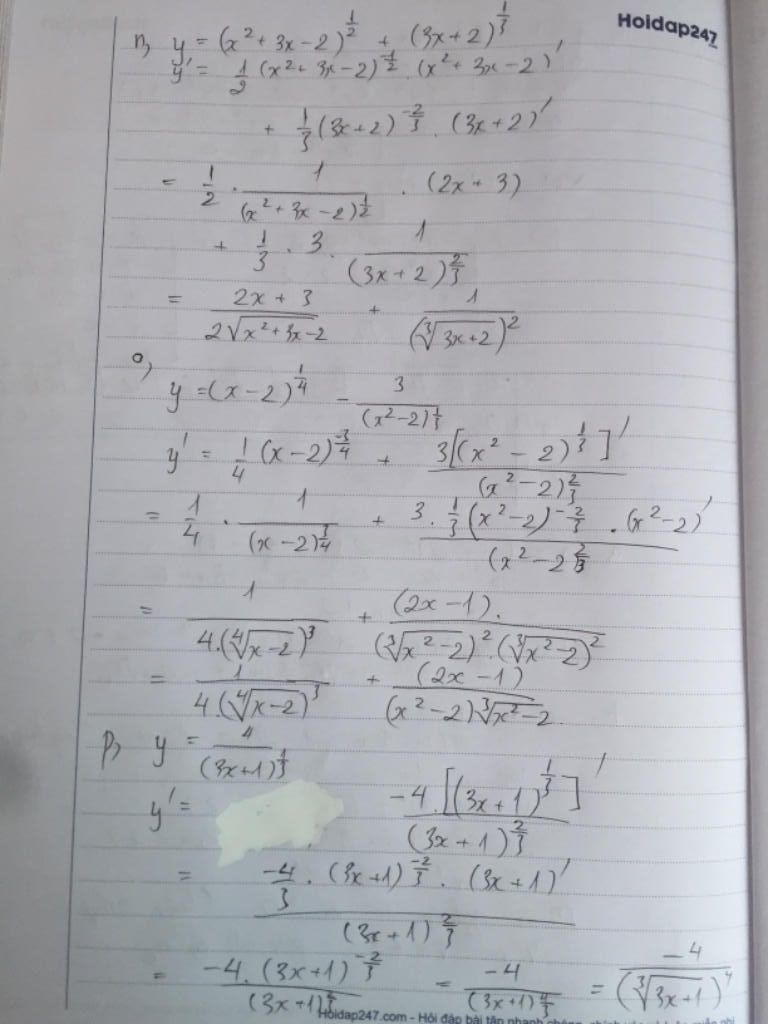 Hoidap247
n, y = (x² + 3x - 2)^{1/2} + (3x + 2)^{1/3}
y' = 1/2 (x² + 3x - 2)^{-1/2} . (x² + 3x - 2)'
+ 1/3 (3x + 2)^{-2/3} . (3x + 2)'
= 1/2 . 1/(x² + 3x - 2)^{1/2} . (2x + 3)
+ 1/3 . 3 . 1/(3x + 2)^{2/3}
= (2x + 3)/(2√(x² + 3x - 2)) + 1/(∛(3x + 2))²
o, y = (x - 2)^{1/4} - 3/(x² - 2)^{1/3}
y' = 1/4 (x - 2)^{-3/4} + 3[(x² - 2)^{1/3}]'/(x² - 2)^{2/3}
= 1/4 . 1/(x - 2)^{3/4} + 3 . 1/3 (x² - 2)^{-2/3} . (x² - 2)'/(x² - 2^{2/3}
= 1/(4.(∜(x - 2))³) + (2x - 1)./((∛(x² - 2))² . (∛(x² - 2))²)
= 1/(4.(∜(x - 2))³) + (2x - 1)/((x² - 2)∛(x² - 2))
p, y = 4/(3x + 1)^{1/3}
y' = -4.[(3x + 1)^{1/3}]'/(3x + 1)^{2/3}
= -4/3 . (3x + 1)^{-2/3} . (3x + 1)'/(3x + 1)^{2/3}
= -4 . (3x + 1)^{-2/3}/(3x + 1)^{2/3} = -4/(3x + 1)^{4/3} = -4/(∛(3x + 1))⁴
Hoidap247.com - Hỏi đáp bài tập nhanh chóng, chính xác và miễn phí